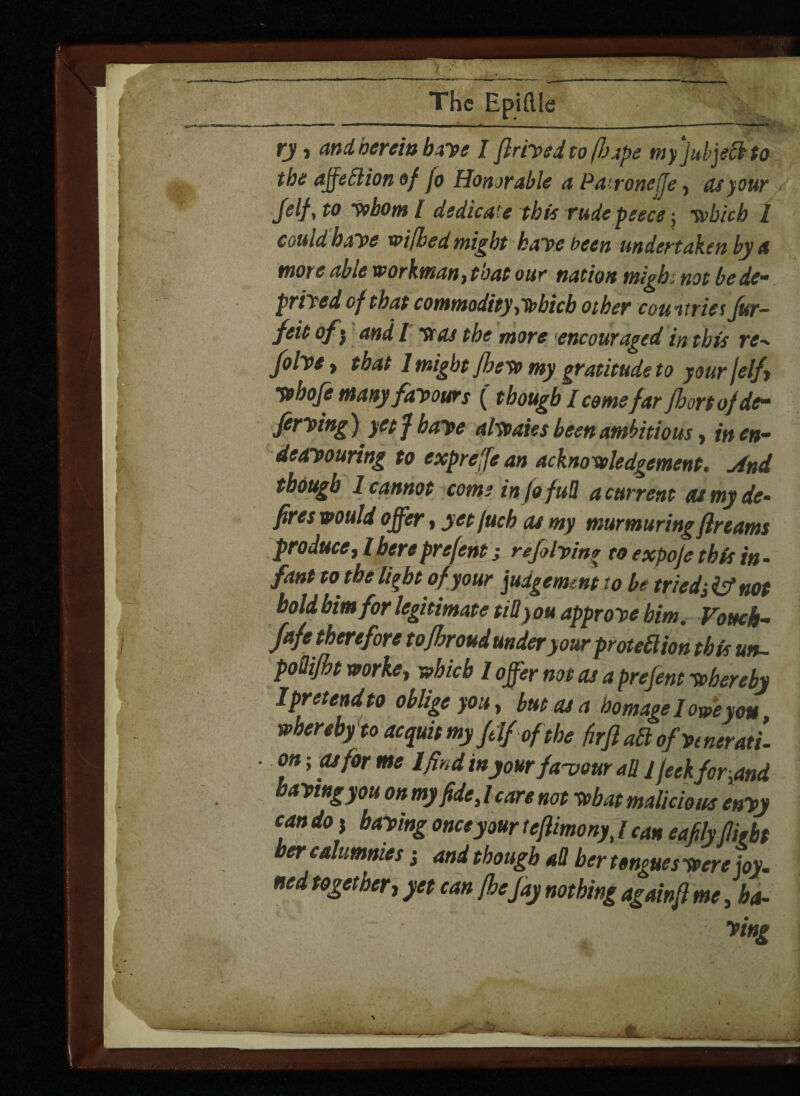 The Epiſtle
ry, and herein have I ſtrived to ſhape my ſubject to
the affection of ſo Honorable a Patroneſſe, as your
ſelf, to whom I dedicate this rude peece; which I
could have wiſhed might have been undertaken by a
more able workman, that our nation might not be de-
prived of that commodity, which other countries ſur-
feit of; and I was the more encouraged in this re-
ſolve, that I might ſhew my gratitude to your ſelf,
whoſe many favours (though I come far ſhort of de-
ſerving) yet I have alwaies been ambitious, in en-
deavouring to expreſſe an acknowledgement. And
though I cannot come in ſo full a current as my de-
ſires would offer, yet ſuch as my murmuring ſtreams
produce, I here preſent; reſolving to expoſe this in-
fant to the light of your judgement to be tried; & not
hold him for legitimate till you approve him. Vouch-
ſafe therefore to ſhroud under your protection this un-
polliſht worke, which I offer not as a preſent whereby
I pretend to oblige you, but as a homage I owe you,
whereby to acquit my ſelf of the firſt act of venerati-
on; as for me I find in your favour all I ſeek for, and
having you on my ſide, I care not what malicious envy
can do; having once your teſtimony, I can eaſily ſlight
her calumnies; and though all her tongues were joy-
ned together, yet can ſhe ſay nothing againſt me, ha-
ving